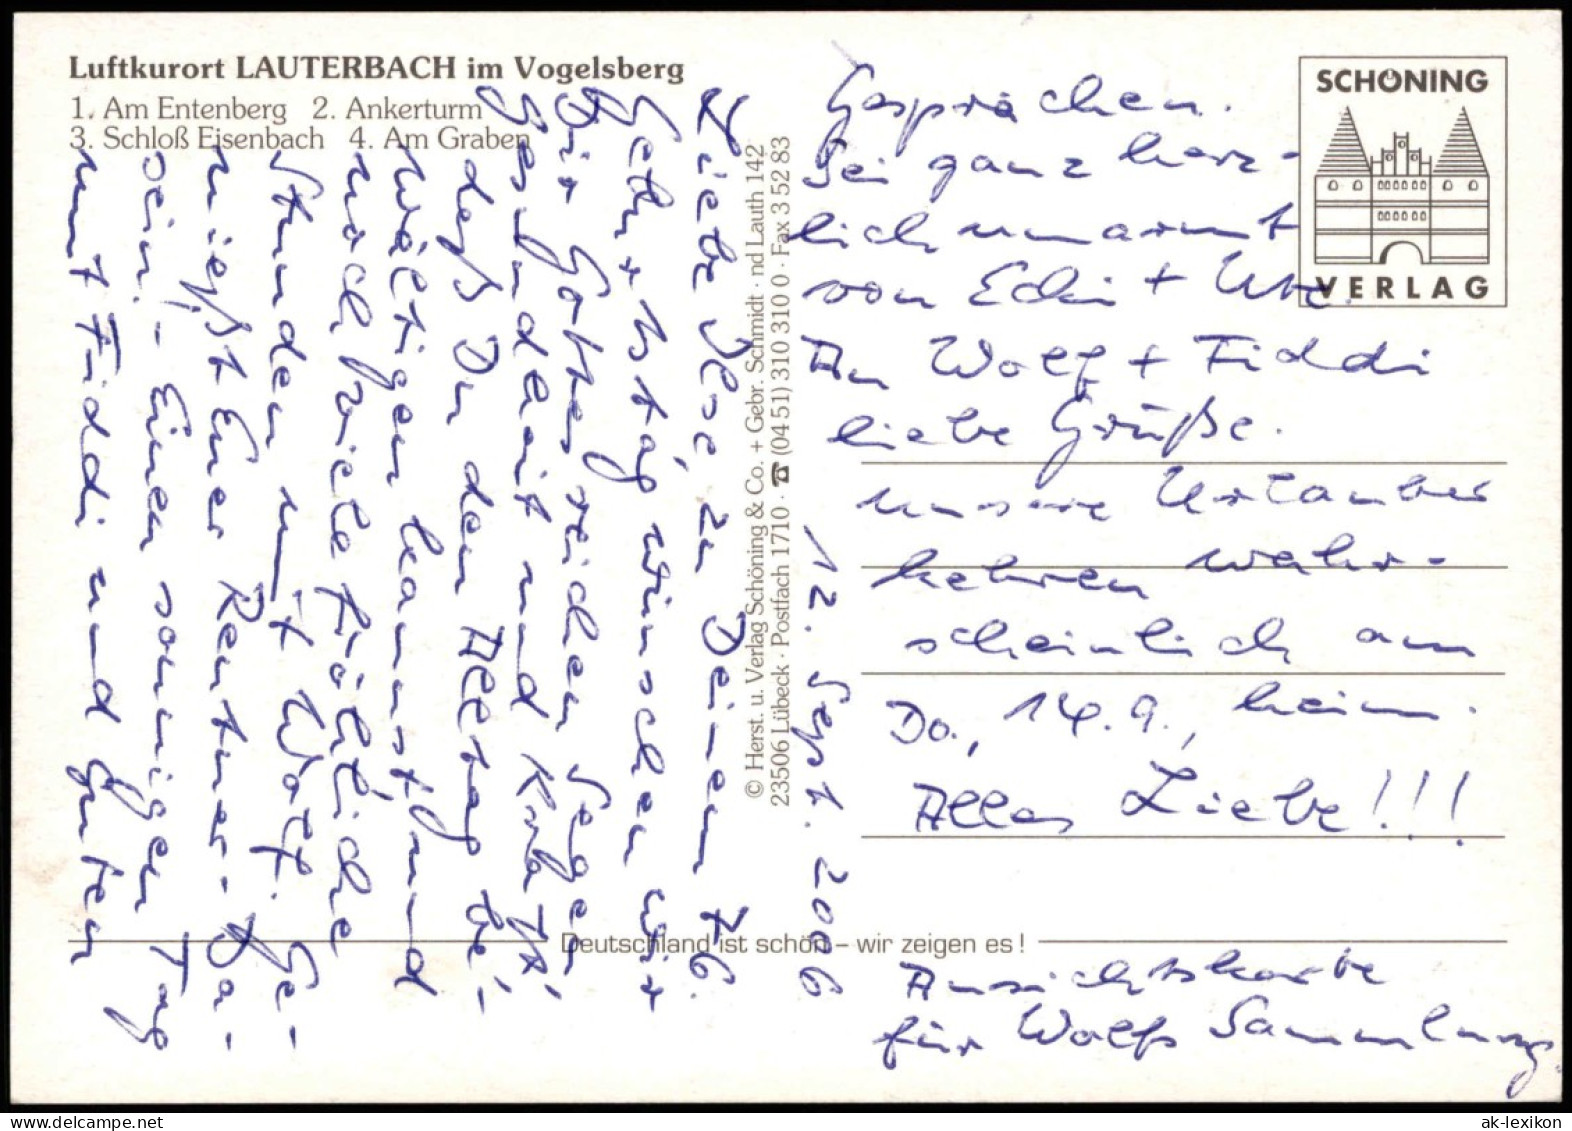 Luftkurort LAUTERBACH im Vogelsberg
1. Am Entenberg 2. Ankerturm
3. Schloß Eisenbach 4. Am Graben
Liebe Ilse, zu Deinem 76.
Geburtstag wünschen wir
Dir Gottes reichen Segen
Gesundheit und Kraft,
daß Du den Alltag be-
wältigen kannst und
noch viele fröhliche
Stunden mit Wolf. Ge-
nießt Euer Rentner-Da-
sein! - Einen sonnigen Tag
mit Fiddi und guten
Gesprächen.
Sei ganz herz-
lich umarmt
von Edi + Ute.
An Wolf + Fiddi
liebe Grüße.
unsere Urlauber
kehren wahr-
scheinlich am
Do., 14.9., heim.
Alles Liebe!!!
12. Sept. 2006
© Herst. u. Verlag Schöning & Co. + Gebr. Schmidt · nd Lauth 142
23506 Lübeck · Postfach 1710 · ☎ (04 51) 310 310 0 · Fax 3 52 83
SCHÖNING
VERLAG
Deutschland ist schön – wir zeigen es!
Ansichtskarte
für Wolfs Sammlung.
ak-lexikon